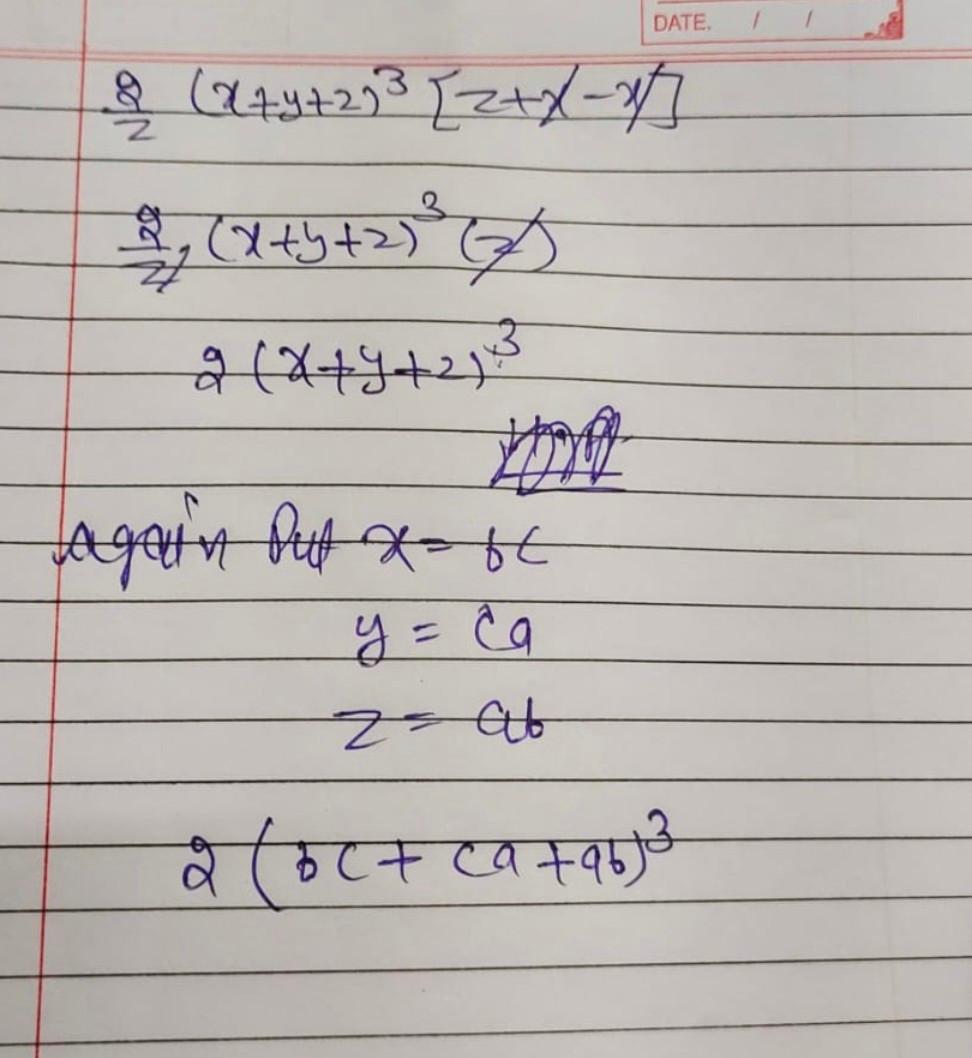 DATE. / /
2/z (x+y+z)³ [z+x-x]
2/z, (x+y+z)³ (z)
2 (x+y+z)³
Again Put x = bc
y = ca
z = ab
2 (bc + ca + ab)³